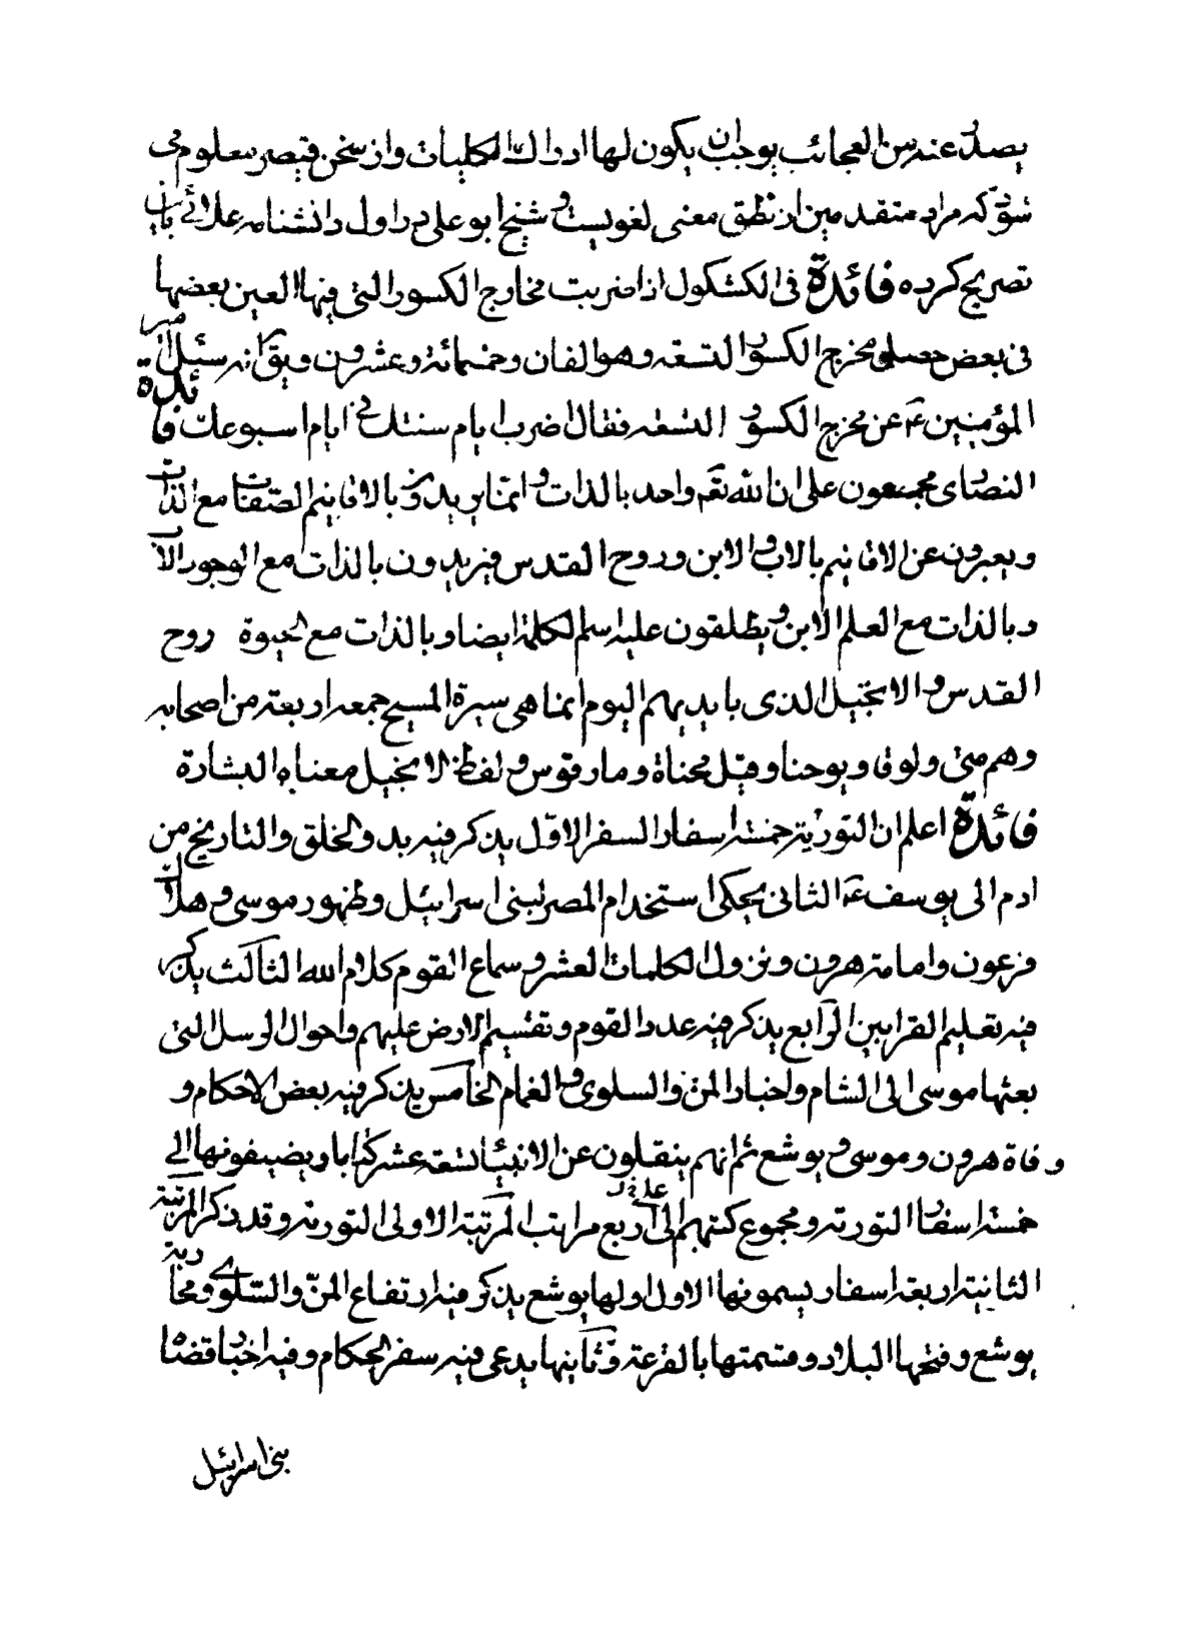 يصدر عنه من العجائب يوجب ان يكون لها ادراك الكليات واز سخن قيصر معلوم مى
شود كه مراد متقدمين از نطق معنى لغويست و شيخ ابو على در اول دانشنامه علائى باين
تصريح كرده فائدة فى الكشكول اذا ضربت مخارج الكسور التى فيها العين بعضها
فى بعض حصل مخرج الكسور التسعه وهو الفان وخمسمائة وعشرون ويق انه سئل امير
المؤمنين ع عن مخرج الكسور التسعه فقال اضرب ايام سنتك فى ايام اسبوعك فائدة
النصارى مجمعون على ان الله تعم واحد بالذات و انما يريدون بالاقانيم الصفات مع الذات
ويعبرون عن الاقانيم بالاب و الابن وروح القدس فيريدون بالذات مع الوجود الاب
وبالذات مع العلم الابن و يطلقون عليه اسم الكلمة ايضا وبالذات مع الحيوة روح
القدس و الانجيل الذى بايديهم اليوم انما هى سيرة المسيح جمعه اربعة من اصحابه
وهم متى ولوقا ويوحنا وقيل محناة ومارقوس و لفظ الانجيل معناه البشارة
فائدة اعلم ان التورية خمسة اسفار السفر الاول يذكر فيه بدو الخلق والتاريخ من
ادم الى يوسف ع الثانى يحكى استخدام المصر لبنى اسرائيل وظهور موسى و هلاك
فرعون وامامة هرون ونزول الكلمات العشر و سماع القوم كلام الله الثالث يذكر
فيه تعليم القرابين الرابع يذكر فيه عدد القوم وتقسيم الارض عليهم واحوال الرسل التى
بعثها موسى الى الشام واخبار المن والسلوى و الغمام الخامس يذكر فيه بعض الاحكام و
وفاة هرون وموسى و يوشع ثم انهم ينقلون عن الانبيا تسعه عشر كتابا ويضيفونها الى
خمسة اسفار التورية ومجموع كتبهم الى اربع مراتب المرتبة الاولى التورية وقد ذكر المرتبة
الثانية اربعة اسفار يسمونها الاول اولها يوشع يذكر فيه ارتفاع المن والسلوى ومحاربة
يوشع وفتحها البلاد وقسمتها بالقرعة و ثانيها يدعى فيه سفر الحكام وفيه اخبار قضاة
بنى اسرائيل